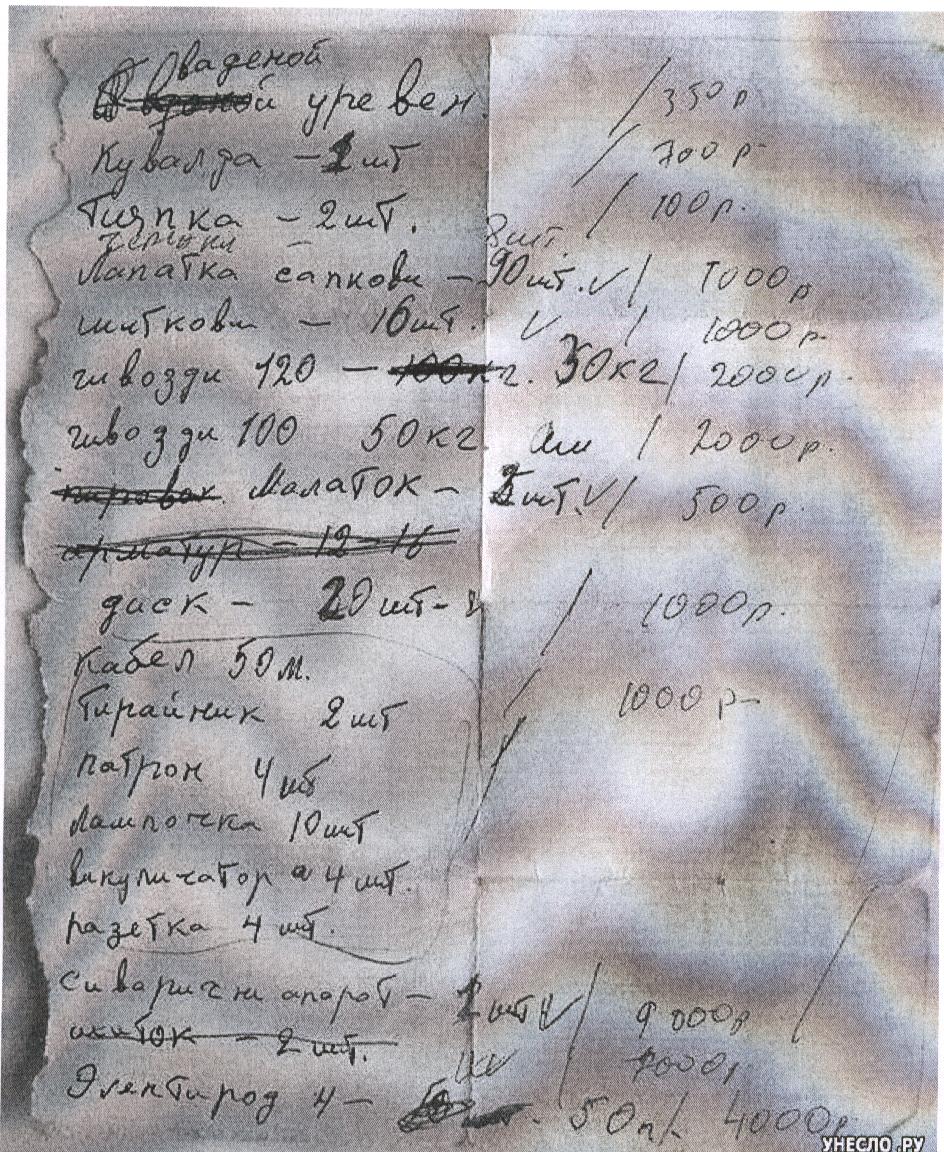 ваденой
й уревен / 350 р
Кувалда – 1 шт / 700 р
Тияпка – 2 шт. / 100 р.
Лапатка сапкови – 90 шт. V / 1000 р
шитковы – 16 шт. V / 1000 р.
гивозди 120 – 100 кг. 50 кг / 2000 р.
гивозди 100 50 кг / 2000 р.
Малаток – шт. V / 500 р.
арматур – 12 – 16
диск – 20 шт – / 1000 р.
Кабел 50 м.
Тирайник 2 шт / 1000 р
патрон 4 шт
Лампочка 10 шт
викуличатор а 4 шт.
разетка 4 шт.
Сиваричи апарот – 1 шт V / 9 000 р
– 2 шт. 7000 р
Электирод 4 – 50 п/. 4000 р
УНЕСЛО.РУ